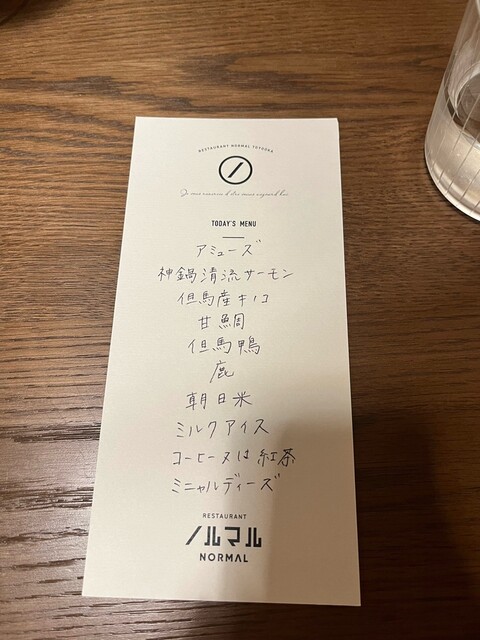 RESTAURANT NORMAL TOYOOKA
TODAY'S MENU
アミューズ
神鍋清流サーモン
但馬産キノコ
甘鯛
但馬鴨
鹿
朝日米
ミルクアイス
コーヒー又は紅茶
ミニャルディーズ
RESTAURANT
ノルマル
NORMAL